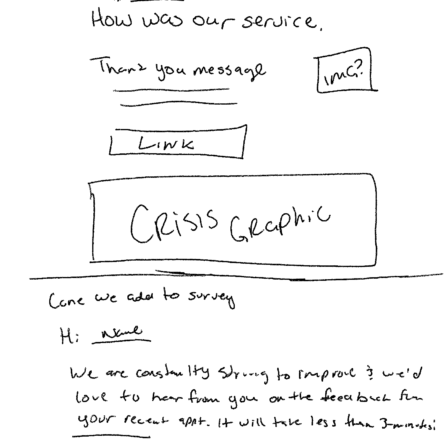 How was our service.
Thank you message
img?
Link
CRISIS GRAPHIC
Cane we add to survey
Hi: Name
We are constantly striving to improve & we'd
love to hear from you on the feedback from
your recent apnt. It will take less than 3-minutes: